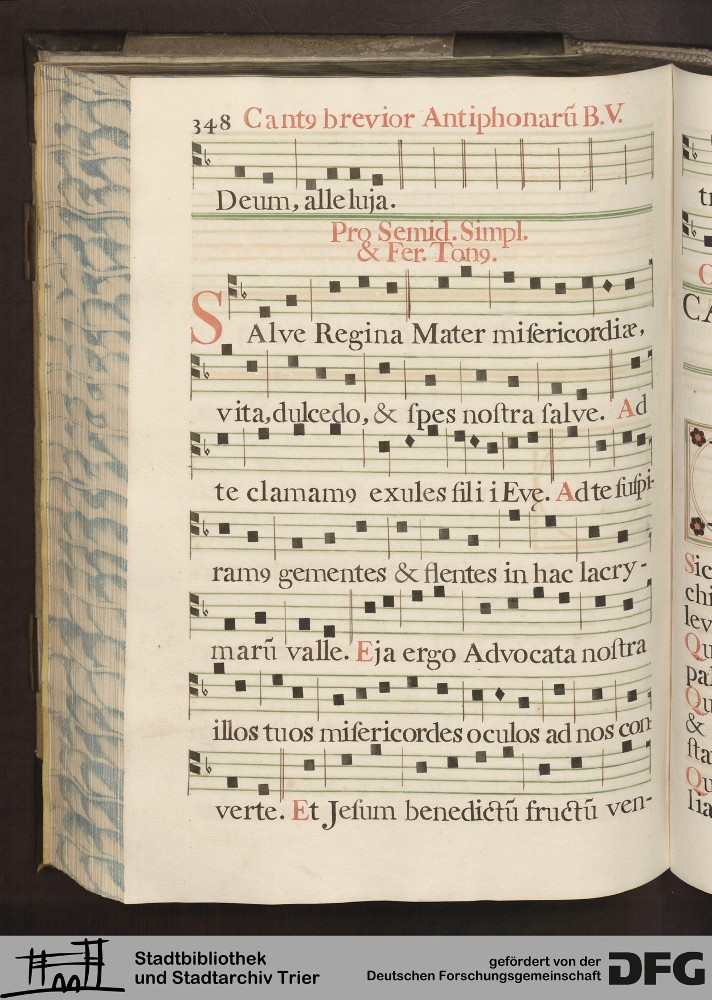 348 Cantꝯ brevior Antiphonarũ B.V.
Deum, alleluja.
Pro Semid. Simpl.
& Fer. Tonꝯ.
SAlve Regina Mater miſericordiæ,
vita, dulcedo, & ſpes noſtra ſalve. Ad
te clamamꝯ exules filii Evę. Ad te ſuſpi-
ramꝯ gementes & flentes in hac lacry-
marũ valle. Eja ergo Advocata noſtra
illos tuos miſericordes oculos ad nos con-
verte. Et Jeſum benedictũ fructũ ven-
tr
CA
Sic
chi
lev
Qu
pa
Qu
&
ſta
Qu
lia
Stadtbibliothek
und Stadtarchiv Trier
gefördert von der
Deutschen Forschungsgemeinschaft
DFG